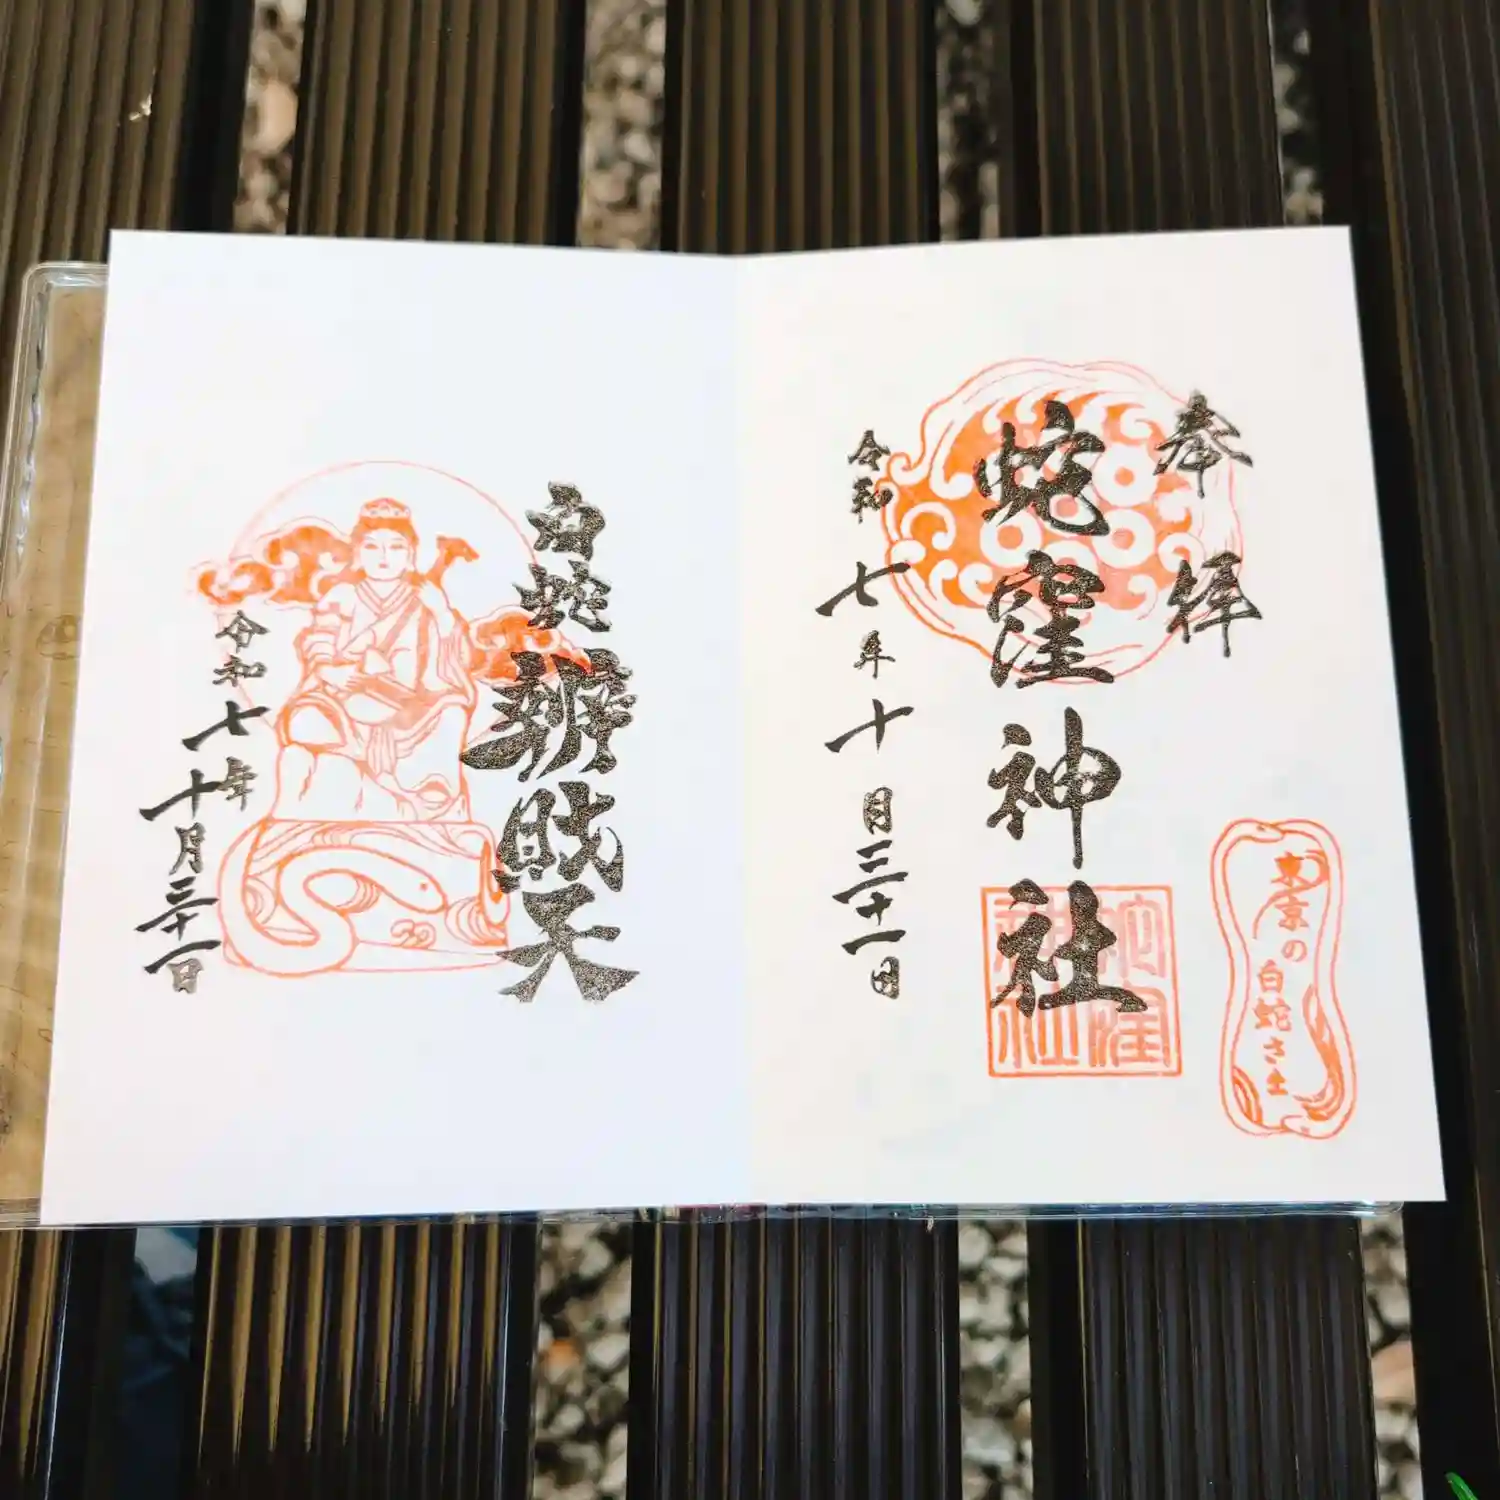 奉拝
蛇窪神社
令和七年十月三十一日
蛇窪
神社
東京の白蛇さま
白蛇辨財天
令和七年十月三十一日